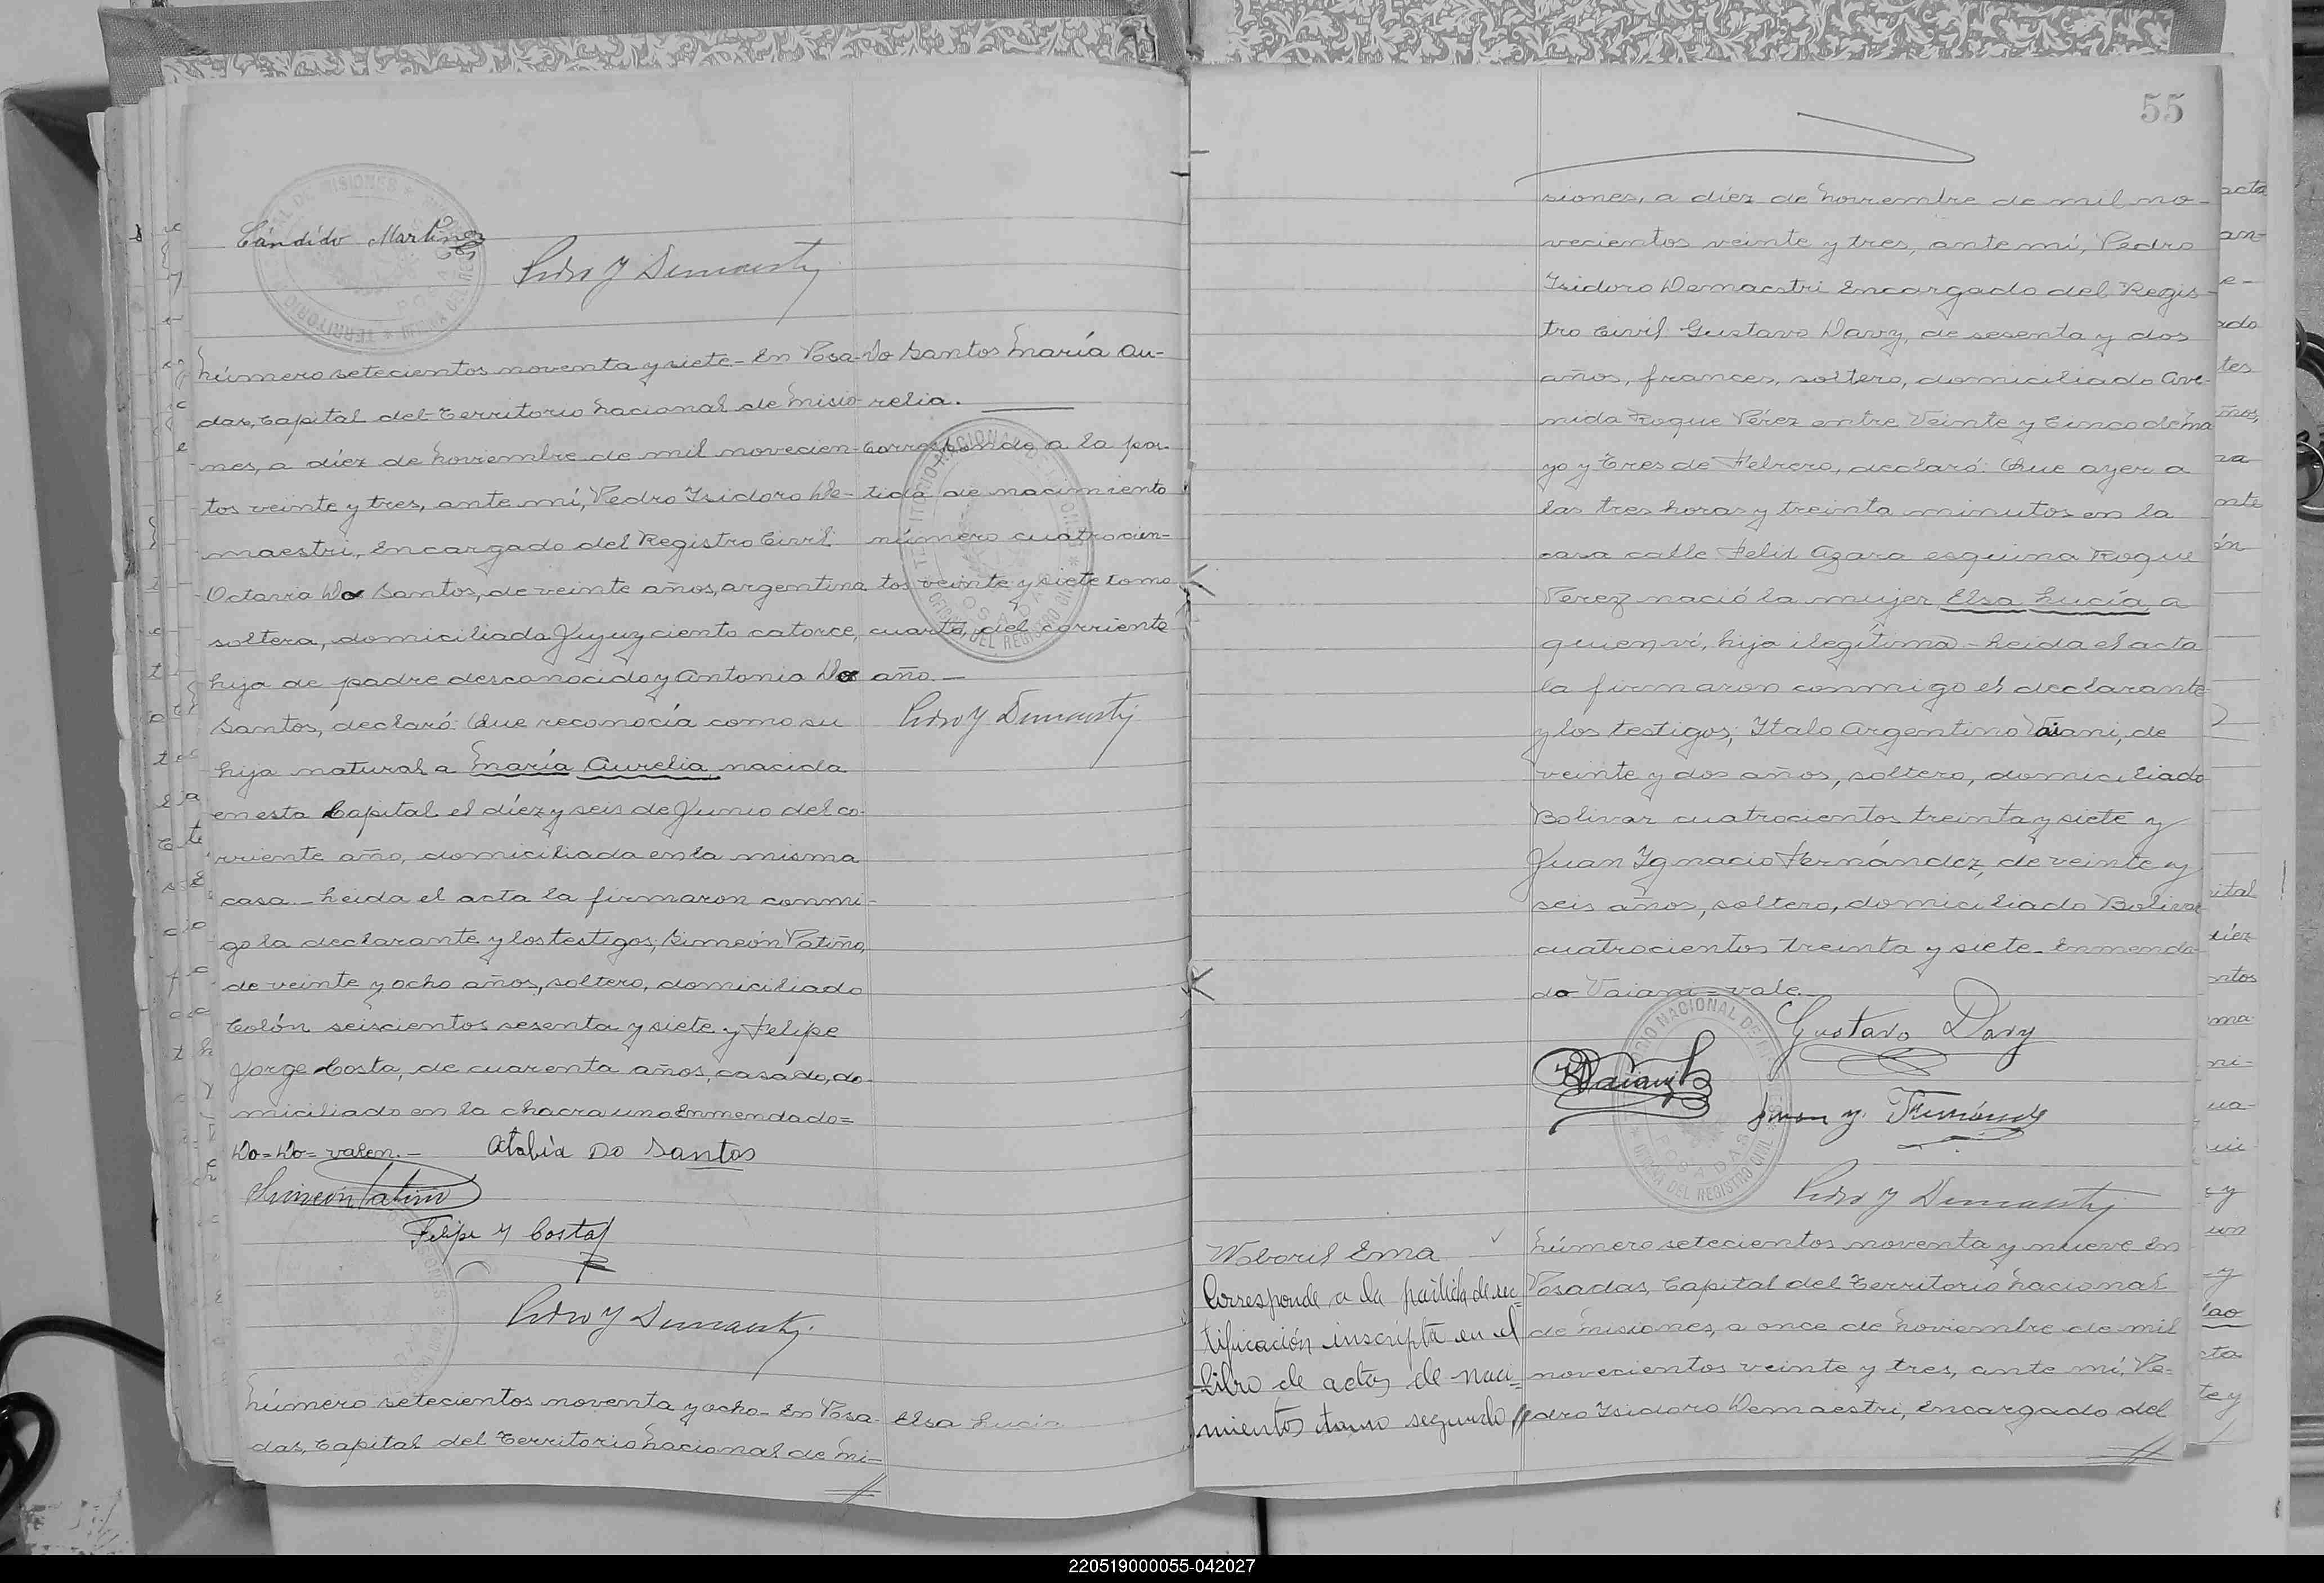 Cándido Martinez
Pedro Y Demaestri
Número setecientos noventa y siete - En Posa-
das, Capital del Territorio Nacional de Misio-
nes, a diez de Noviembre de mil novecien-
tos veinte y tres, ante mí, Pedro Isidoro De-
maestri, Encargado del Registro Civil
Octavia Do Santos, de veinte años, argentina
soltera, domiciliada Jujuy ciento catorce,
hija de padre desconocido y Antonia Do
Santos, declaró: Que reconocía como su
hija natural a María Aurelia nacida
en esta Capital el diez y seis de Junio del co-
rriente año, domiciliada en la misma
casa. - Leida el acta la firmaron conmi-
go la declarante y los testigos; Simeón Patiño,
de veinte y ocho años, soltero, domiciliado
Colón seiscientos sesenta y siete y Felipe
Jorge Costa, de cuarenta años, casado, do-
miciliado en la chacra uno Enmendado=
Do=Do= valen. -
Do Santos María Au-
relia.
Corresponde a la par-
tida de nacimiento
número cuatrocien-
tos veinte y siete tomo
cuarto, del corriente
año. -
Pedro Y Demaestri
Atabia Do Santos
Simeón Patiño
Felipe Y Costa
Pedro Y Demaestri
Número setecientos noventa y ocho - En Posa-
das, Capital del Territorio Nacional de Mi-
Elsa Lucía
55
siones, a diez de Noviembre de mil no-
vecientos veinte y tres, ante mí, Pedro
Isidoro Demaestri Encargado del Regis-
tro Civil Gustavo Davy, de sesenta y dos
años, frances, soltero, domiciliado Ave-
nida Roque Pérez entre Veinte y Cinco de Ma
yo y Tres de Febrero, declaró: Que ayer a
las tres horas y treinta minutos en la
casa calle Felix Azara esquina Roque
Perez nació la mujer Elsa Lucía a
quien ví, hija ilegítima - Leida el acta
la firmaron conmigo el declarante
y los testigos; Italo Argentino Vaiani, de
veinte y dos años, soltero, domiciliado
Bolivar cuatrocientos treinta y siete y
Juan Ygnacio Fernández, de veinte y
seis años, soltero, domiciliado Bolivar
cuatrocientos treinta y siete - Enmenda-
do Vaiani = vale. -
Gustavo Davy
Juan Y. Fernández
Pedro Y Demaestri
Woboril Ema
Corresponde a la partida de rec=
tificación inscripta en el
Libro de actas de naci=
mientos tomo segundo
Número setecientos noventa y nueve En
Posadas, Capital del Territorio Nacional
de Misiones, a once de Noviembre de mil
novecientos veinte y tres, ante mí, Pe-
dro Isidoro Demaestri, Encargado del
220519000055-042027